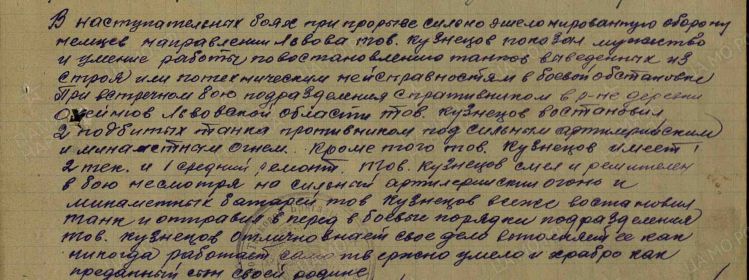 В наступательных боях при прорыве сильно эшелонированную оборону
немцев направлении Львова тов. Кузнецов показал мужество
и умение работы по востановлению танков выведенных из
строя или по техническим нейсправностям в боевой обстановке
При встречном бою подразделения с противником в р-не деревни
Львовской области тов. Кузнецов востановил
2 подбитых танка противником под сильным артилерийским
и минаметным огнем. Кроме того тов. Кузнецов имеет
2 тек. и 1 средний ремонт. тов. Кузнецов смел и решителен
в бою несмотря на сильный артилерийский огонь и
минаметных батарей тов Кузнецов все же востановил
танк и отправил в перед в боевые порядки подразделения
тов. Кузнецов отлично знает свое дело выполняет ее как
никогда работает умело и храбро как
преданный сын своей родине